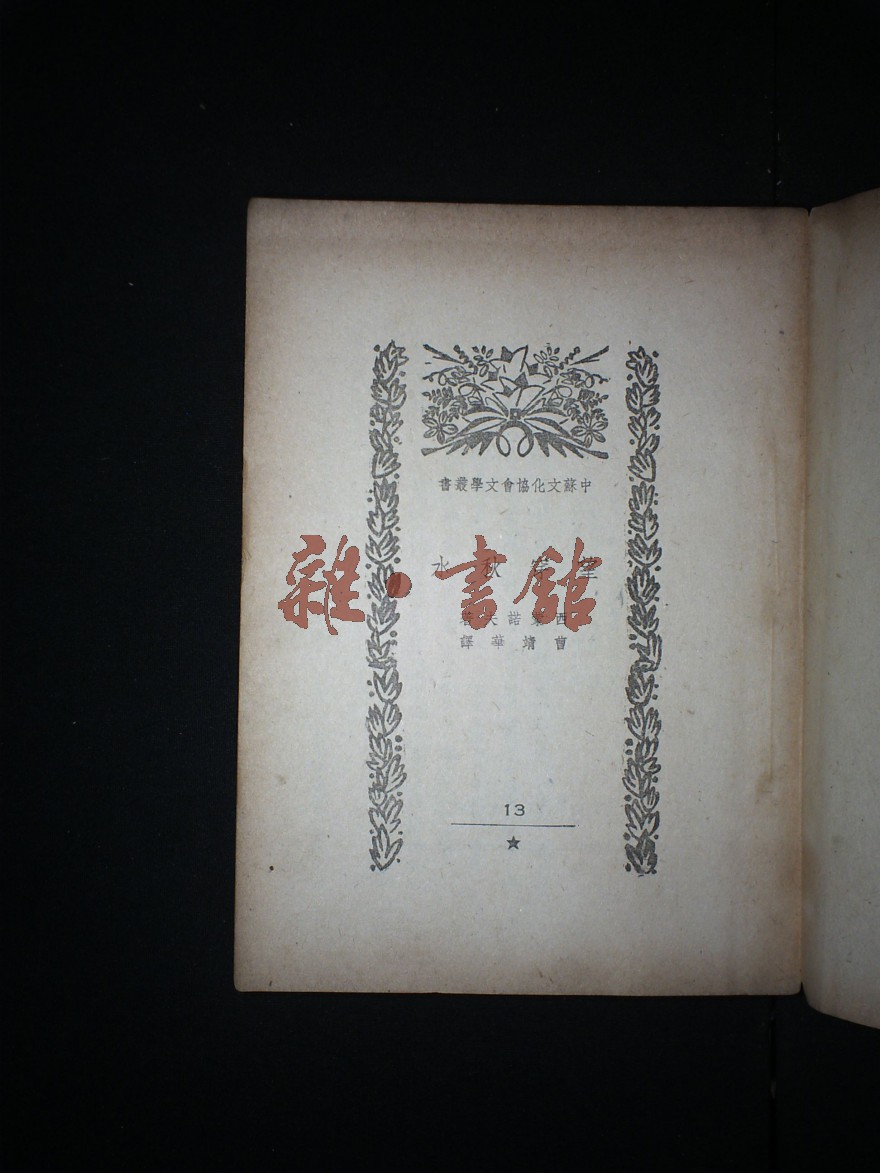 中蘇文化協會文學叢書
望穿秋水
雜·書館
西蒙諾夫著
曹靖華譯
13